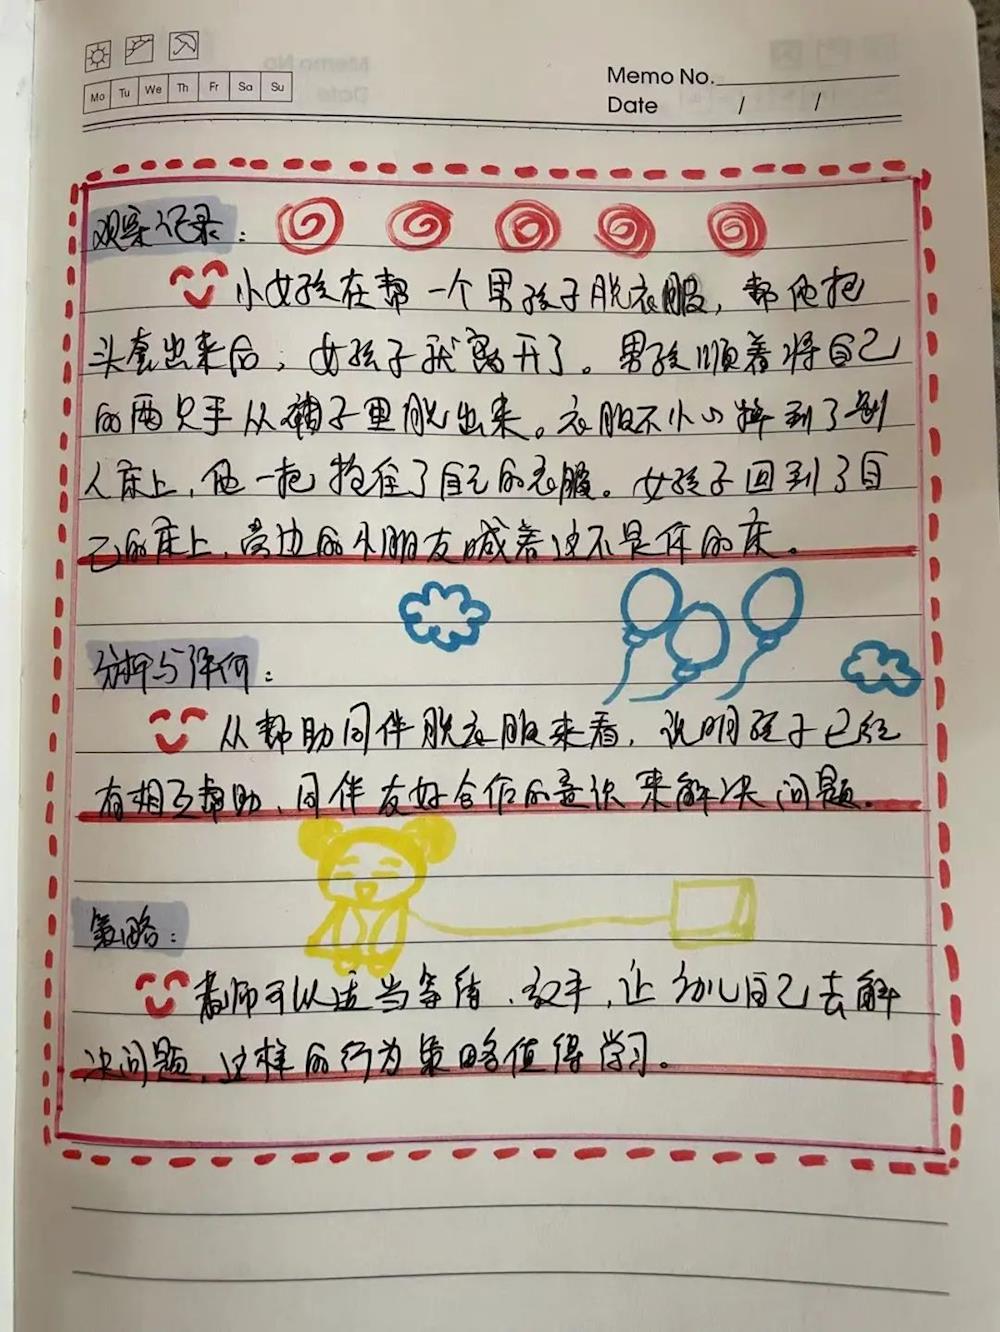 Mo Tu We Th Fr Sa Su
Memo No.
Date / /
观察记录：
小女孩在帮一个男孩子脱衣服，帮他把
头套出来后，女孩子就离开了。男孩顺着将自己
的两只手从袖子里脱出来。衣服不小心掉到了别
人床上，他一把抱住了自己的衣服。女孩子回到了自
己的床上，旁边的小朋友喊着这不是你的床。
分析与评价：
从帮助同伴脱衣服来看，说明孩子已经
有相互帮助、同伴友好合作的意识来解决问题。
策略：
老师可以适当等待、放手，让幼儿自己去解
决问题，这样的行为策略值得学习。